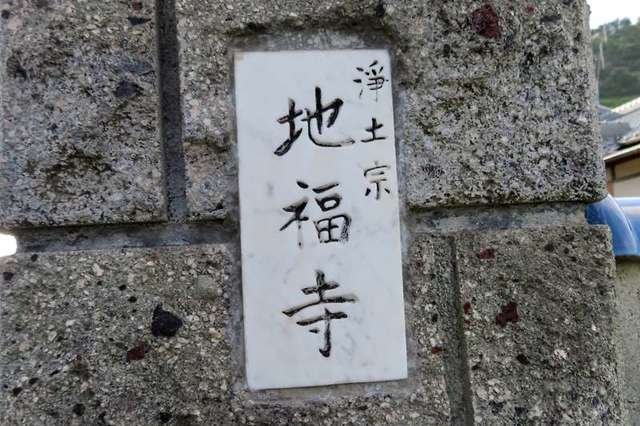 浄土宗
地福寺